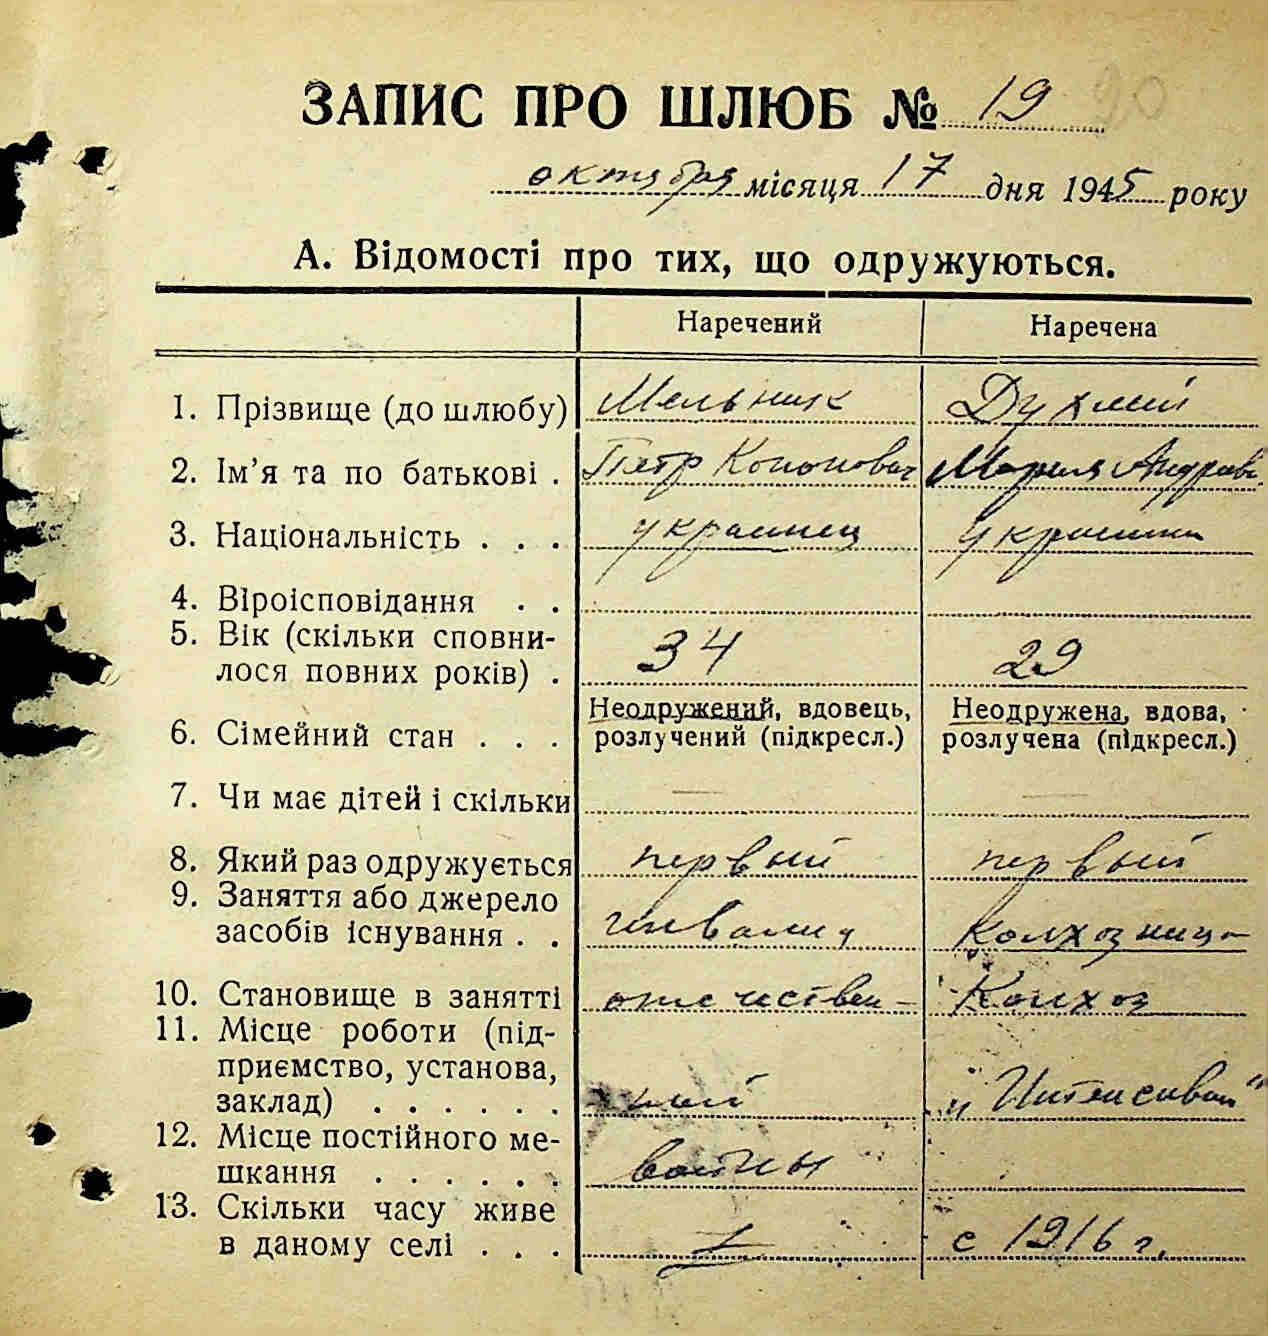 ЗАПИС ПРО ШЛЮБ № 19 20
октября місяця 17 дня 1945 року
А. Відомості про тих, що одружуються.
Наречений Наречена
1. Прізвище (до шлюбу) Мельник Духний
2. Ім’я та по батькові . Петр Кононович Мария Андреев
3. Національність . . . украинец украинка
4. Віроісповідання . .
5. Вік (скільки сповни-
лося повних років) . 34 29
Неодружений, вдовець, Неодружена, вдова,
6. Сімейний стан . . . розлучений (підкресл.) розлучена (підкресл.)
7. Чи має дітей і скільки — —
8. Який раз одружується первый первый
9. Заняття або джерело
засобів існування . . инвалид Колхозница
10. Становище в занятті отечествен- Колхоз
11. Місце роботи (під-
приємство, установа,
заклад) . . . . . . ный „Интенсивник"
12. Місце постійного ме-
шкання . . . . . . войны
13. Скільки часу живе
в даному селі . . . с 1916 г.